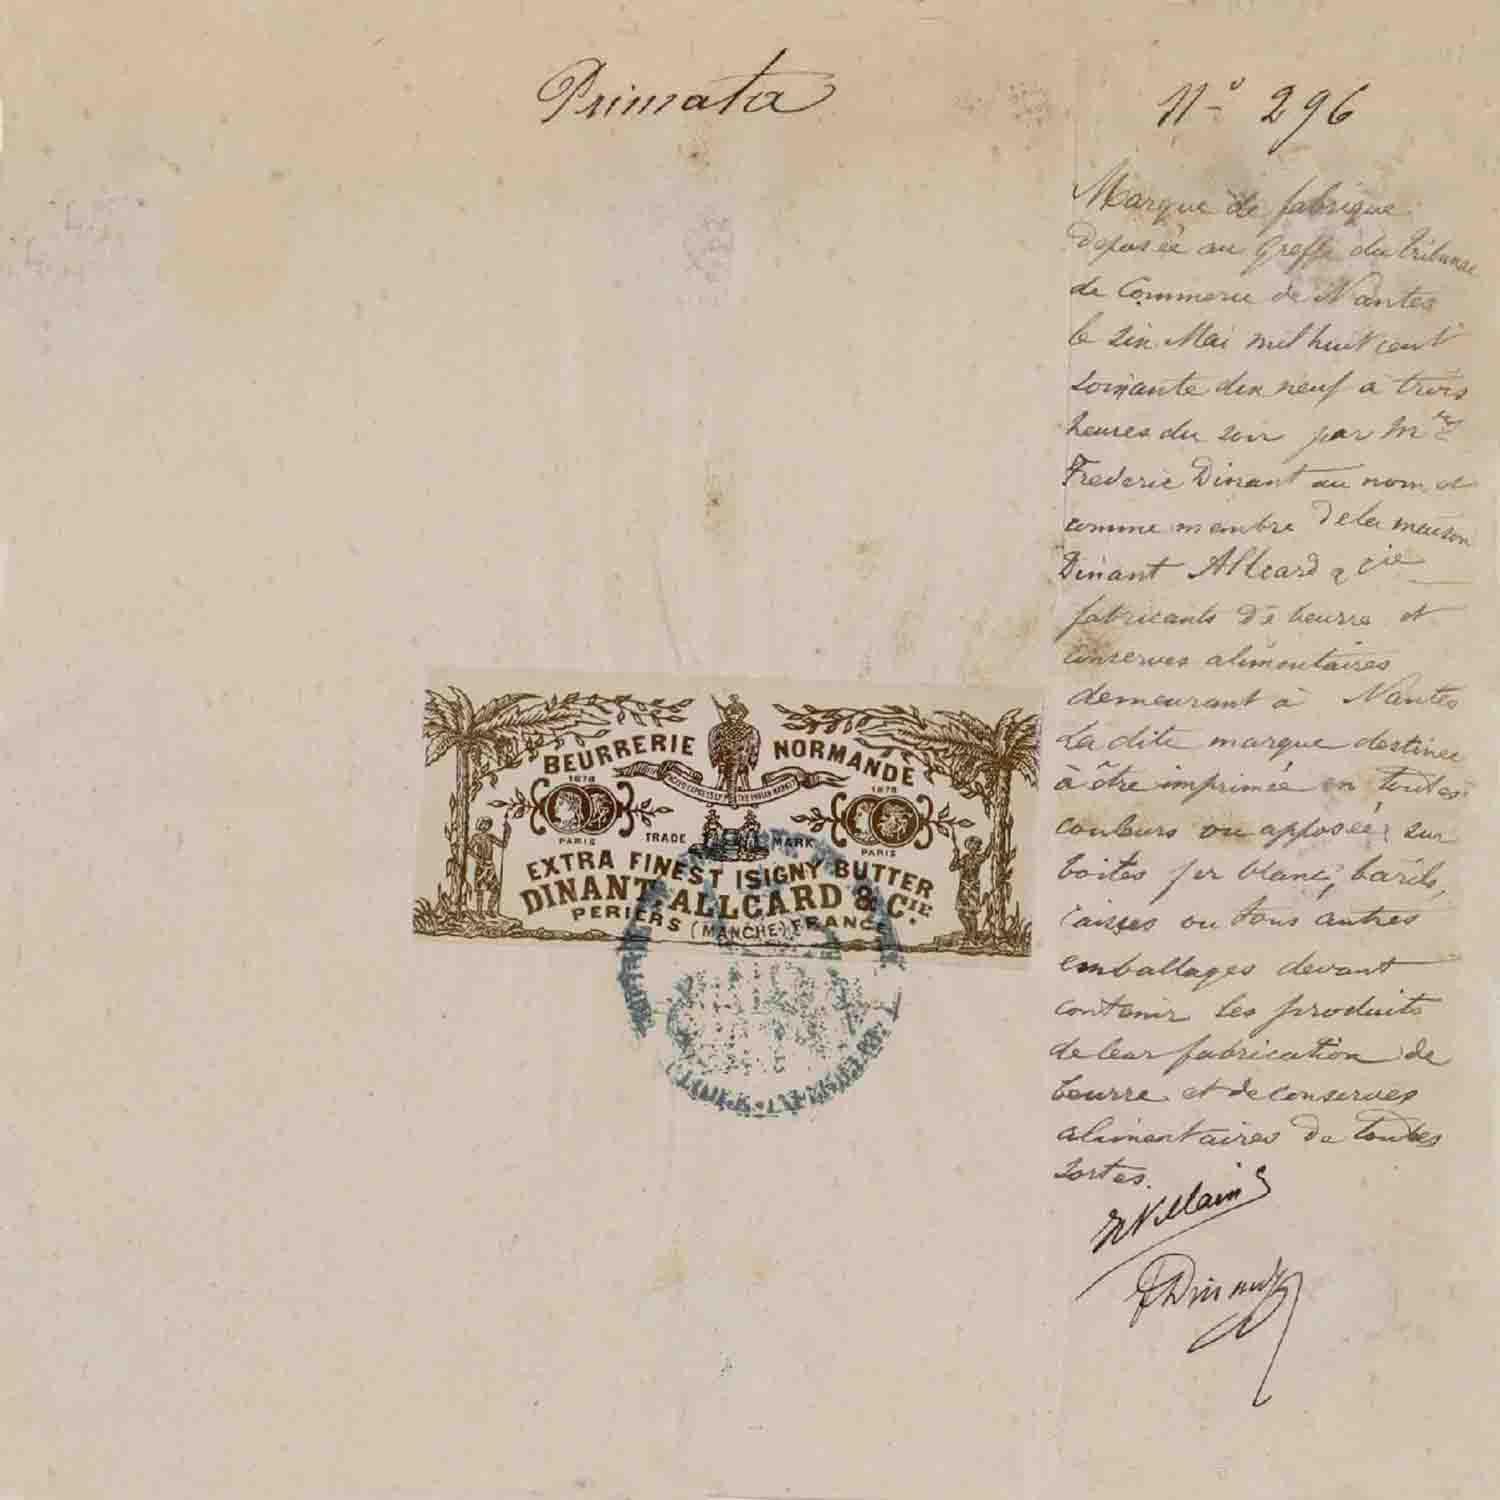 Primata
N° 296
Marque de fabrique
deposée au Greffe du tribunal
de Commerce de Nantes
le six Mai mil huit cent
soixante dix neuf à trois
heures du soir par Mr
Frederic Dinant au nom et
comme membre de la maison
Dinant Allcard & Cie
fabricants de beurre et
conserves alimentaires
demeurant à Nantes
La dite marque destinée
à être imprimée en toutes
couleurs ou apposée sur
boites fer blanc, barils,
caisses ou tous autres
emballages devant
contenir les produits
de leur fabrication de
beurre et de conserves
alimentaires de toutes
sortes.
FDinant
BEURRERIE NORMANDE
1878 1878
PARIS PARIS
TRADE MARK
EXTRA FINEST ISIGNY BUTTER
DINANT, ALLCARD & CIE.
PERIERS (MANCHE) FRANCE